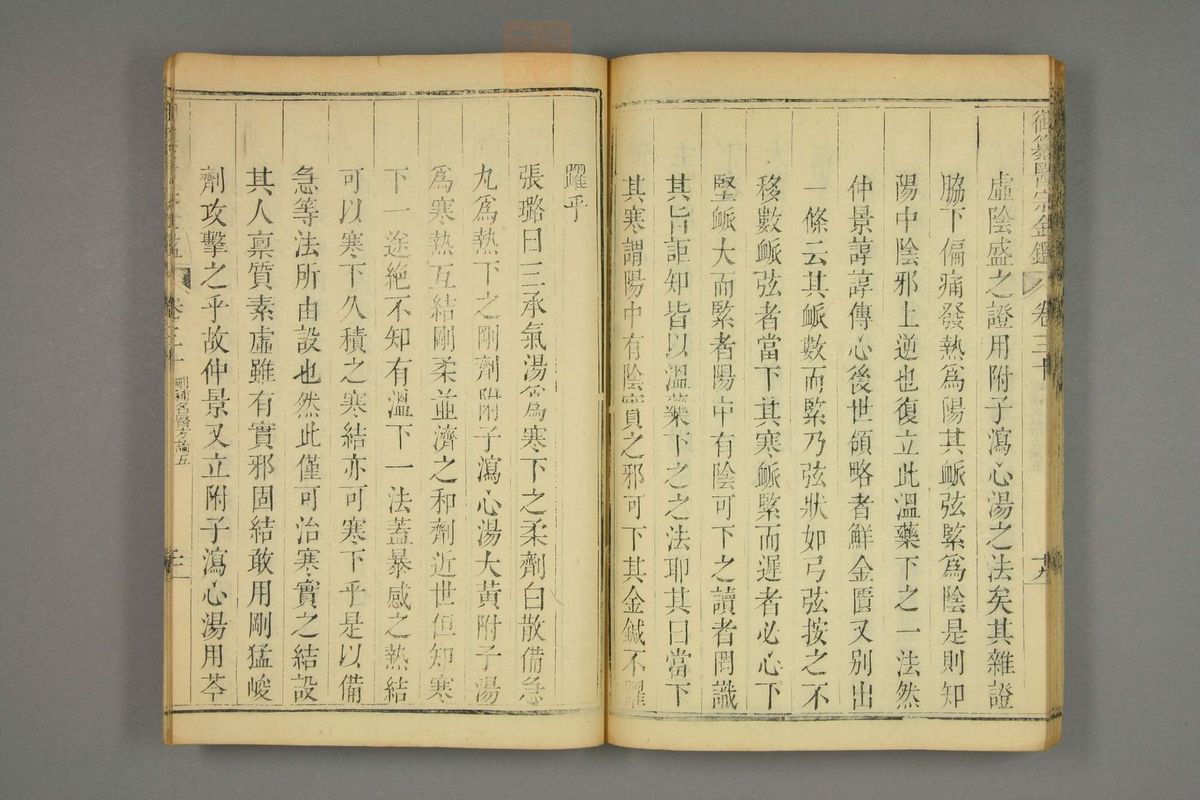 御纂醫宗金鑑
卷三十
虛陰盛之證用附子瀉心湯之法矣其雜證
脇下偏痛發熱爲陽其脈弦緊爲陰是則知
陽中陰邪上逆也復立此溫藥下之一法然
仲景諄諄傳心後世領略者鮮金匱又別出
一條云其脈數而緊乃弦狀如弓弦按之不
移數脈弦者當下其寒脈緊而遲者必心下
堅脈大而緊者陽中有陰可下之讀者罔識
其旨詎知皆以溫藥下之之法耶其曰當下
其寒謂陽中有陰實之邪可下其金鍼不躍
躍乎
張璐曰三承氣湯爲寒下之柔劑白散備急
丸爲熱下之剛劑附子瀉心湯大黃附子湯
爲寒熱互結剛柔並濟之和劑近世但知寒
下一途絶不知有溫下一法蓋暴感之熱結
可以寒下久積之寒結亦可寒下乎是以備
急等法所由設也然此僅可治寒實之結設
其人稟質素虛雖有實邪固結敢用剛猛峻
劑攻擊之乎故仲景又立附子瀉心湯用芩
卷三十
刪補名醫方論五